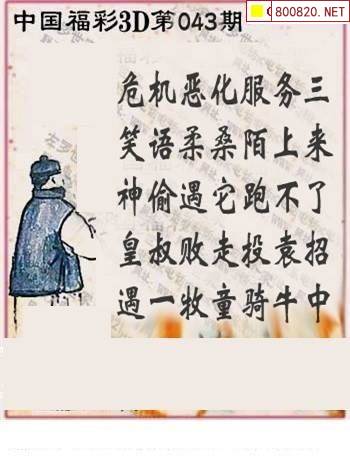 中国福彩3D第043期
800820.NET
危机恶化服务三
笑语柔桑陌上来
神偷遇它跑不了
皇叔败走投袁招
遇一牧童骑牛中